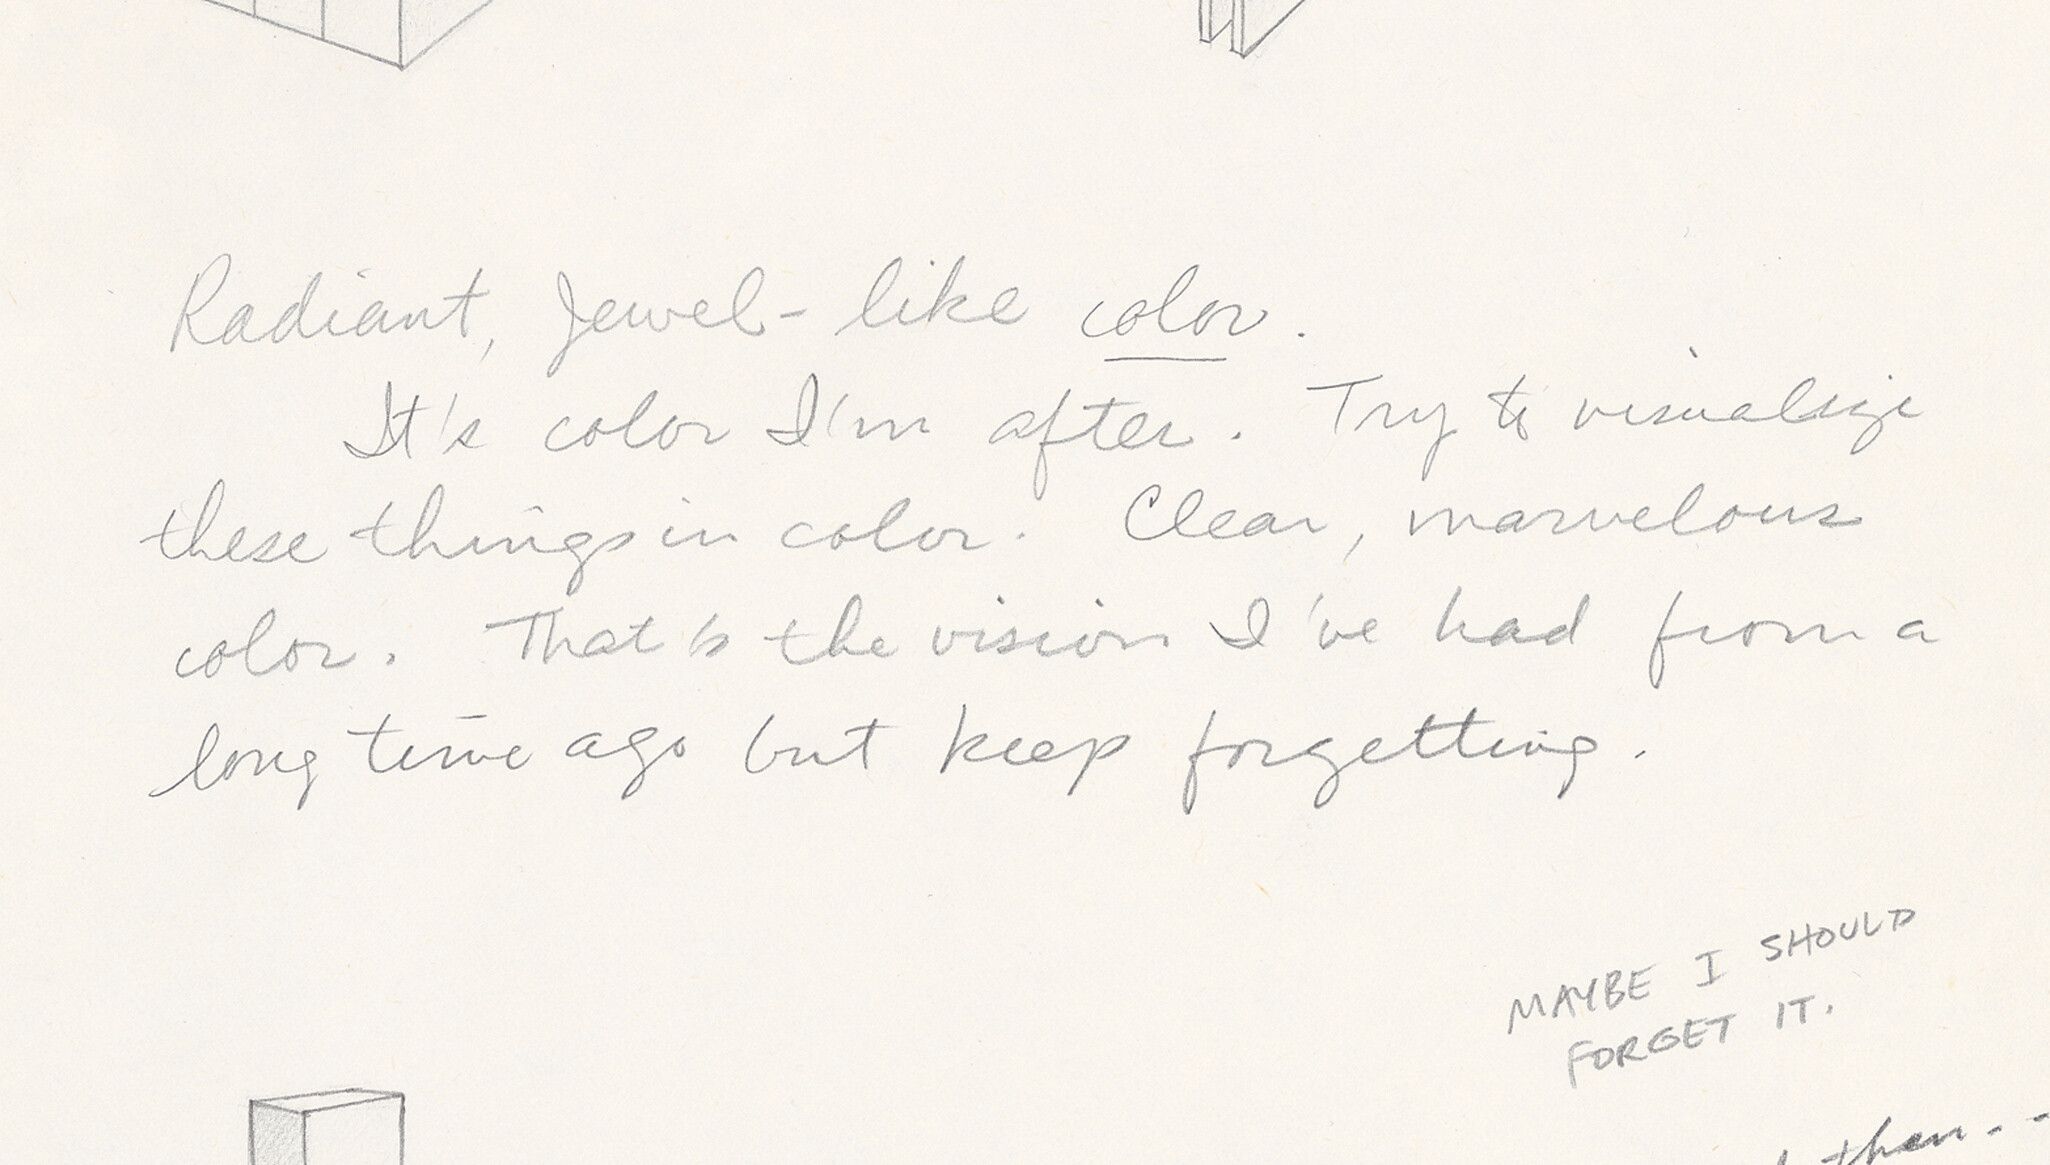 Radiant, Jewel-like color.
It's color I'm after. Try to visualize
these things in color. Clear, marvelous
color. That is the vision I've had from a
long time ago but keep forgetting.
MAYBE I SHOULD
FORGET IT.
then--